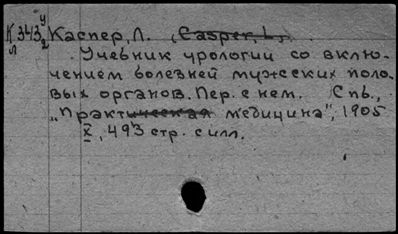 К 343 у/2 Каспер, Л. (Casper, L.)
л Учебник урологии со вклю-
чением болезней мужских поло-
вых органов. Пер. с нем. Спб.,
„Практическая медицина", 1905
X, 493 стр. с илл.